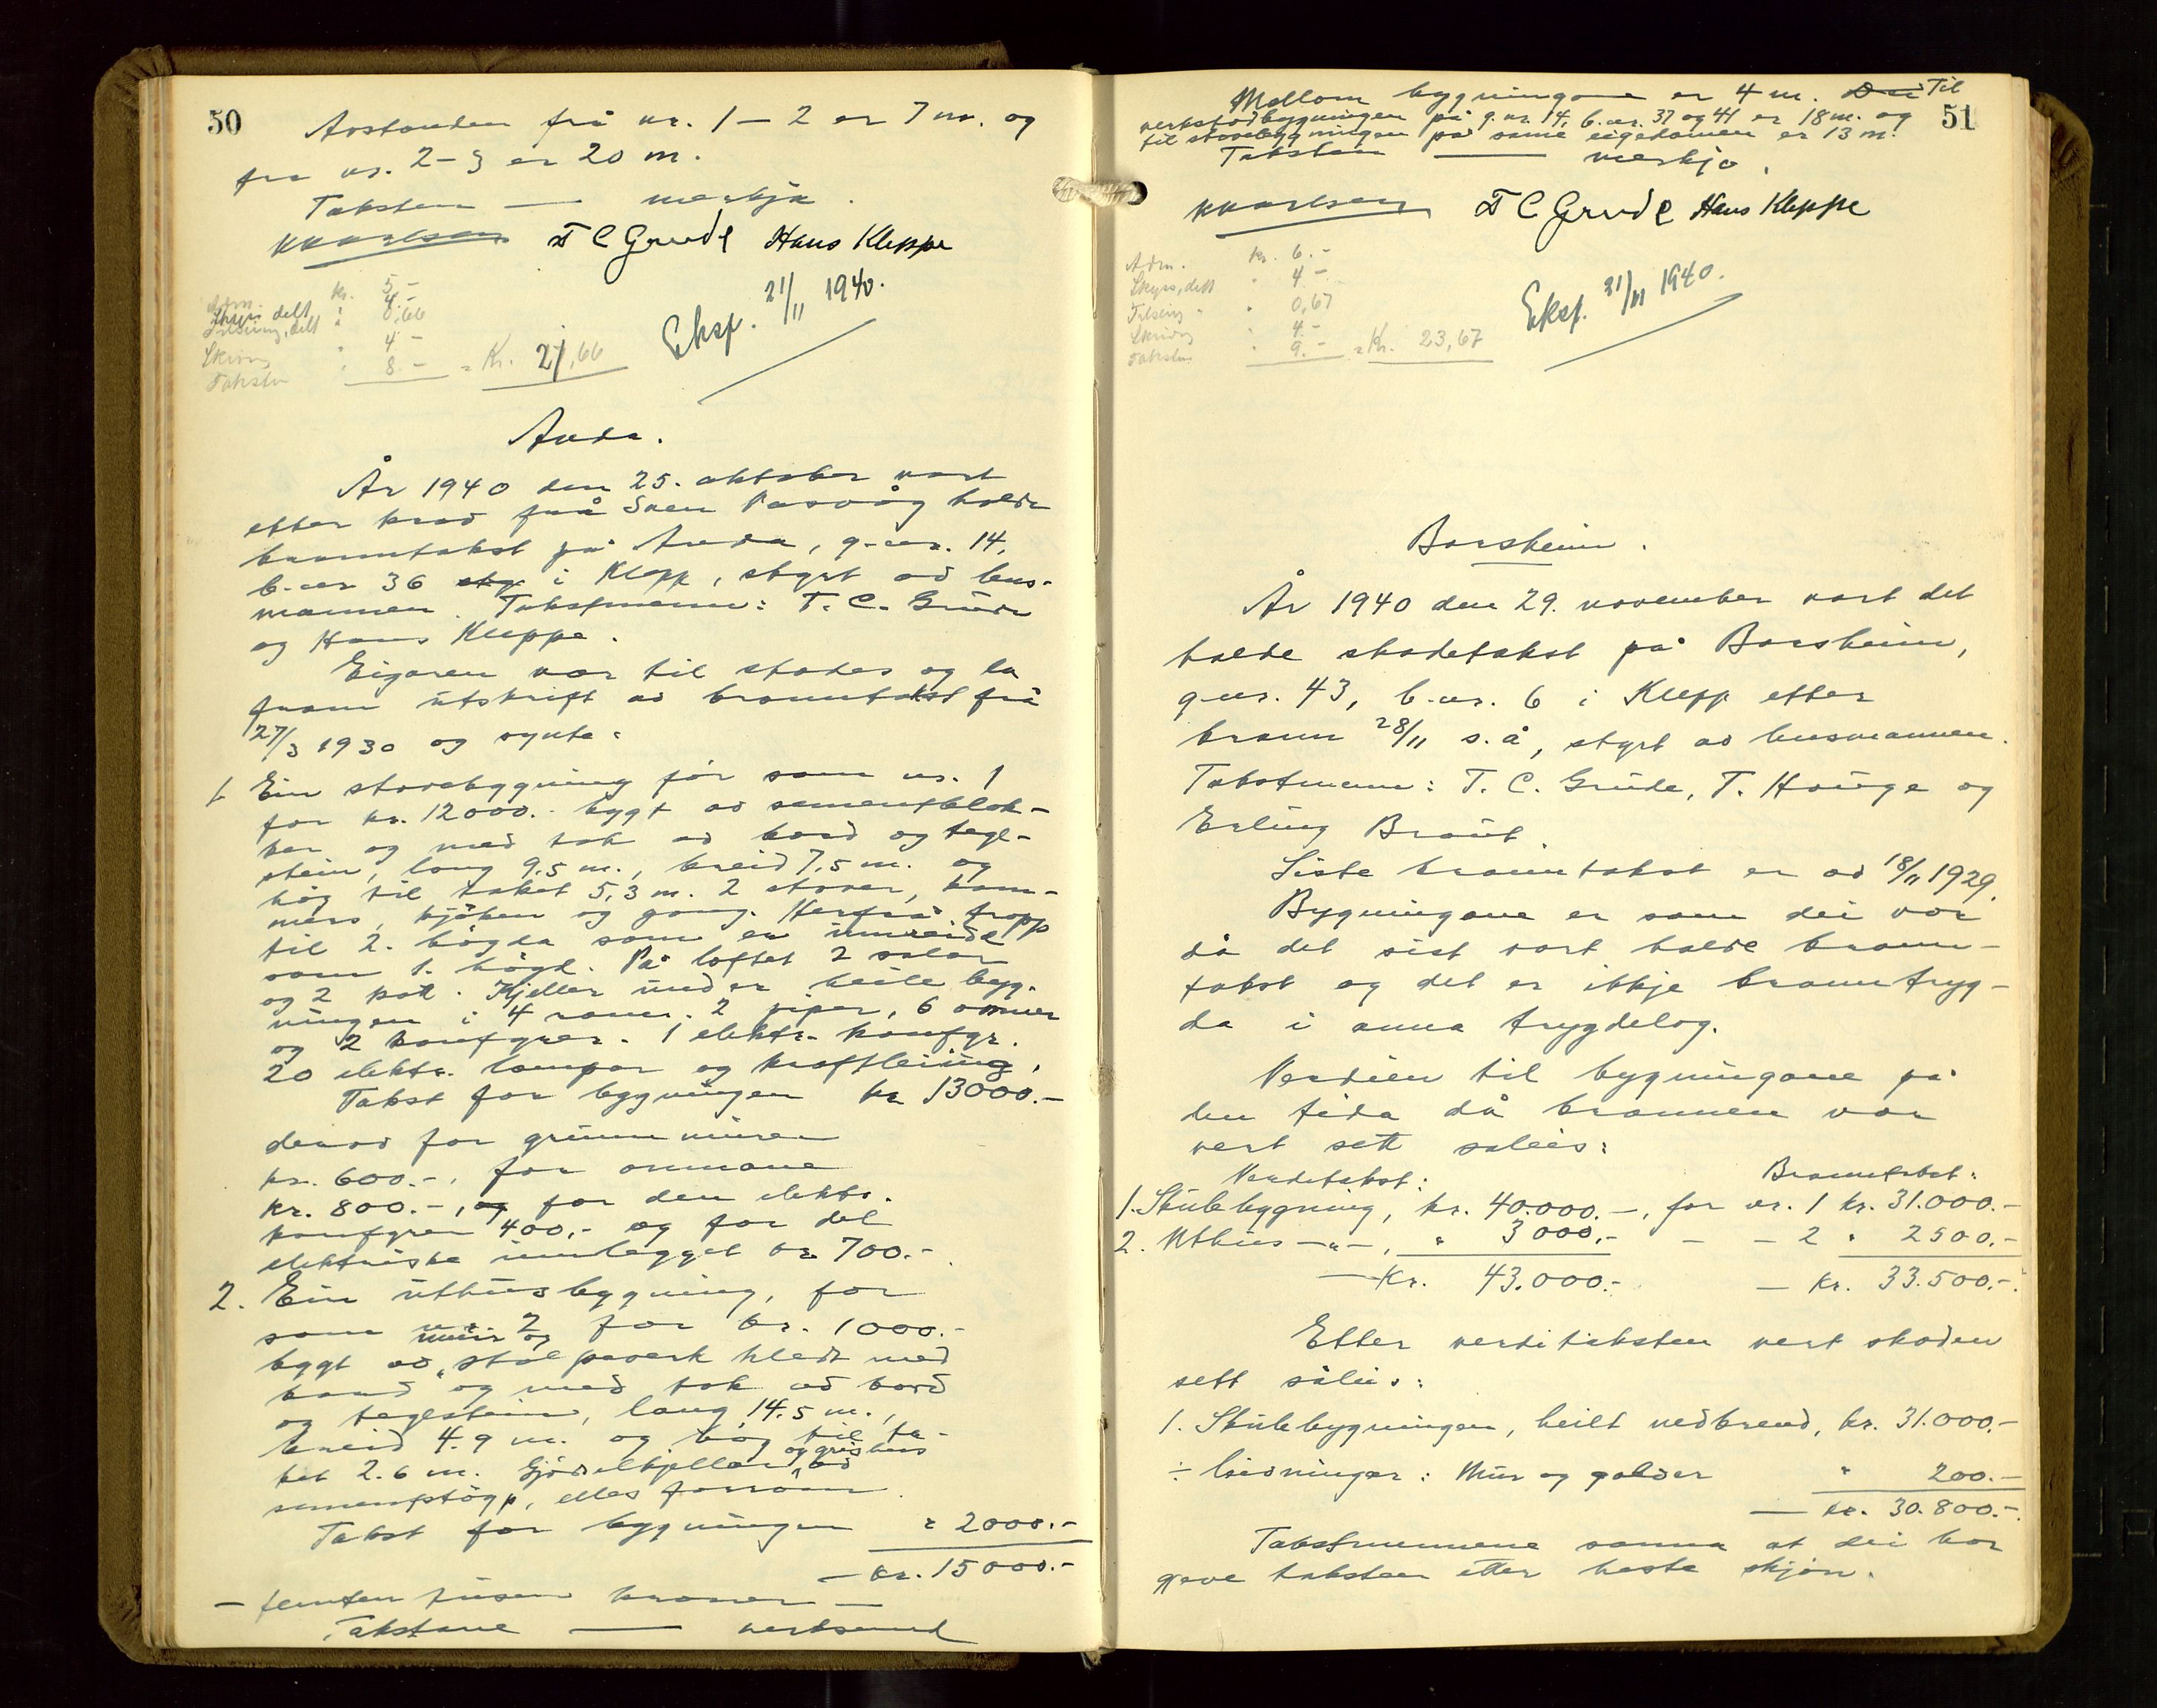 50
Avstanden frå nr. 1 – 2 er 7 m. og
fra nr. 2-3 er 20 m.
Taksten — merkja.
T C Grude Hans Kleppe
Adm. kr. 5.-
Skyss delt " 4.-
Tilseiing, delt " 0,66
Skriving " 4 -
Taksten " 8 - = Kr. 21,66
Eksp. 21/11 1940.
Anda.
År 1940 den 25. oktober vart
etter krav frå Sven halde
branntakst på Anda, g-nr. 14,
b-nr 36 i Klepp, styrt av lens-
mannen. Takstmenn: T. C. Grude
og Hans Kleppe.
Eigaren var til stades og la
fram utskrift av branntakst frå
27/3 1930 og synte:
1. Ein stovebygning før som nr. 1
for kr. 12000.- bygt av sementblok-
ker og med tak av bord og tegl-
stein, lang 9,5 m., breid 7,5 m. og
høg til taket 5,3 m. 2 stover, kam-
mers, kjøken og gang. Herfrå tropp
til 2. høgda som er innreidd
som 1. høgd. På loftet 2 salar
og 2 kott. Kjeller under heile byg-
ningen i 4 romer. 2 piper, 6 omner
og 2 komfyrer. 1 elektr. komfyr.
20 elektr. lampor og kraftleiing.
Takst for bygningen kr 13000.-
derav for grunnmuren
kr. 600.-, for omnane
kr. 800.-, og for den elektr.
komfyren 400,- og for det
elektriske innlegget kr 700.-
2. Ein uthusbygning, for
som nr 2 for kr. 1000.-
mur og
bygt av stolpeverk kledt med
bord og med tak av bord
og teglstein, lang 14.5 m.,
breid 4.9 m. og høg til ta-
ket 2.6 m. Gjødselkjellar og grishus av
sementstøyp, elles forrom.
Takst for bygningen " 2000.-
— kr. 15000.-
— femten tusen kroner —
Takstane — verksemd
51
Mellom bygningane er 4 m. Dei Til
verkstadbygningen på g.nr. 14, b.nr. 37 og 41 er 18 m. og
til stovebygningen på same eigedomen er 13 m.
Taksten — merkja.
T C Grude Hans Kleppe
Adm. kr. 6.-
Skyss, delt " 4 -
Tilseiing " " 0,67
Skriving " 4.-
Taksten " 9.- = Kr. 23,67
Eksp. 21/11 1940.
Borsheim.
År 1940 den 29. november vart det
halde skadetakst på Borsheim,
g-nr. 43, b-nr. 6 i Klepp etter
brann 28/11 s.å, styrt av lensmannen.
Takstmenn: T. C. Grude, T. Hauge og
Erling Braut.
Siste branntakst er av 18/11 1929.
Bygningane er som dei var
då det sist vart halde brann-
takst og det er ikkje branntryg-
da i anna trygdelag.
Verdien til bygningane på
den tida då brannen var
vert sett soleis:
Verdetakst: Branntakst:
1. Stubebygning, kr. 40.000.-, for nr. 1 kr. 31.000.-
2. Uthus -"-, " 3000.- — — 2 " 2500.-
— Kr. 43.000.- — kr. 33.500.-
Etter verditaksten vert skaden
sett såleis:
1. Stubebygningen, heilt nedbrend, kr. 31.000.-
÷ leivningar: Mur og " 200.-
— kr. 30.800.-
Takstmennene sanna at dei har
gjeve taksten etter beste skjøn.